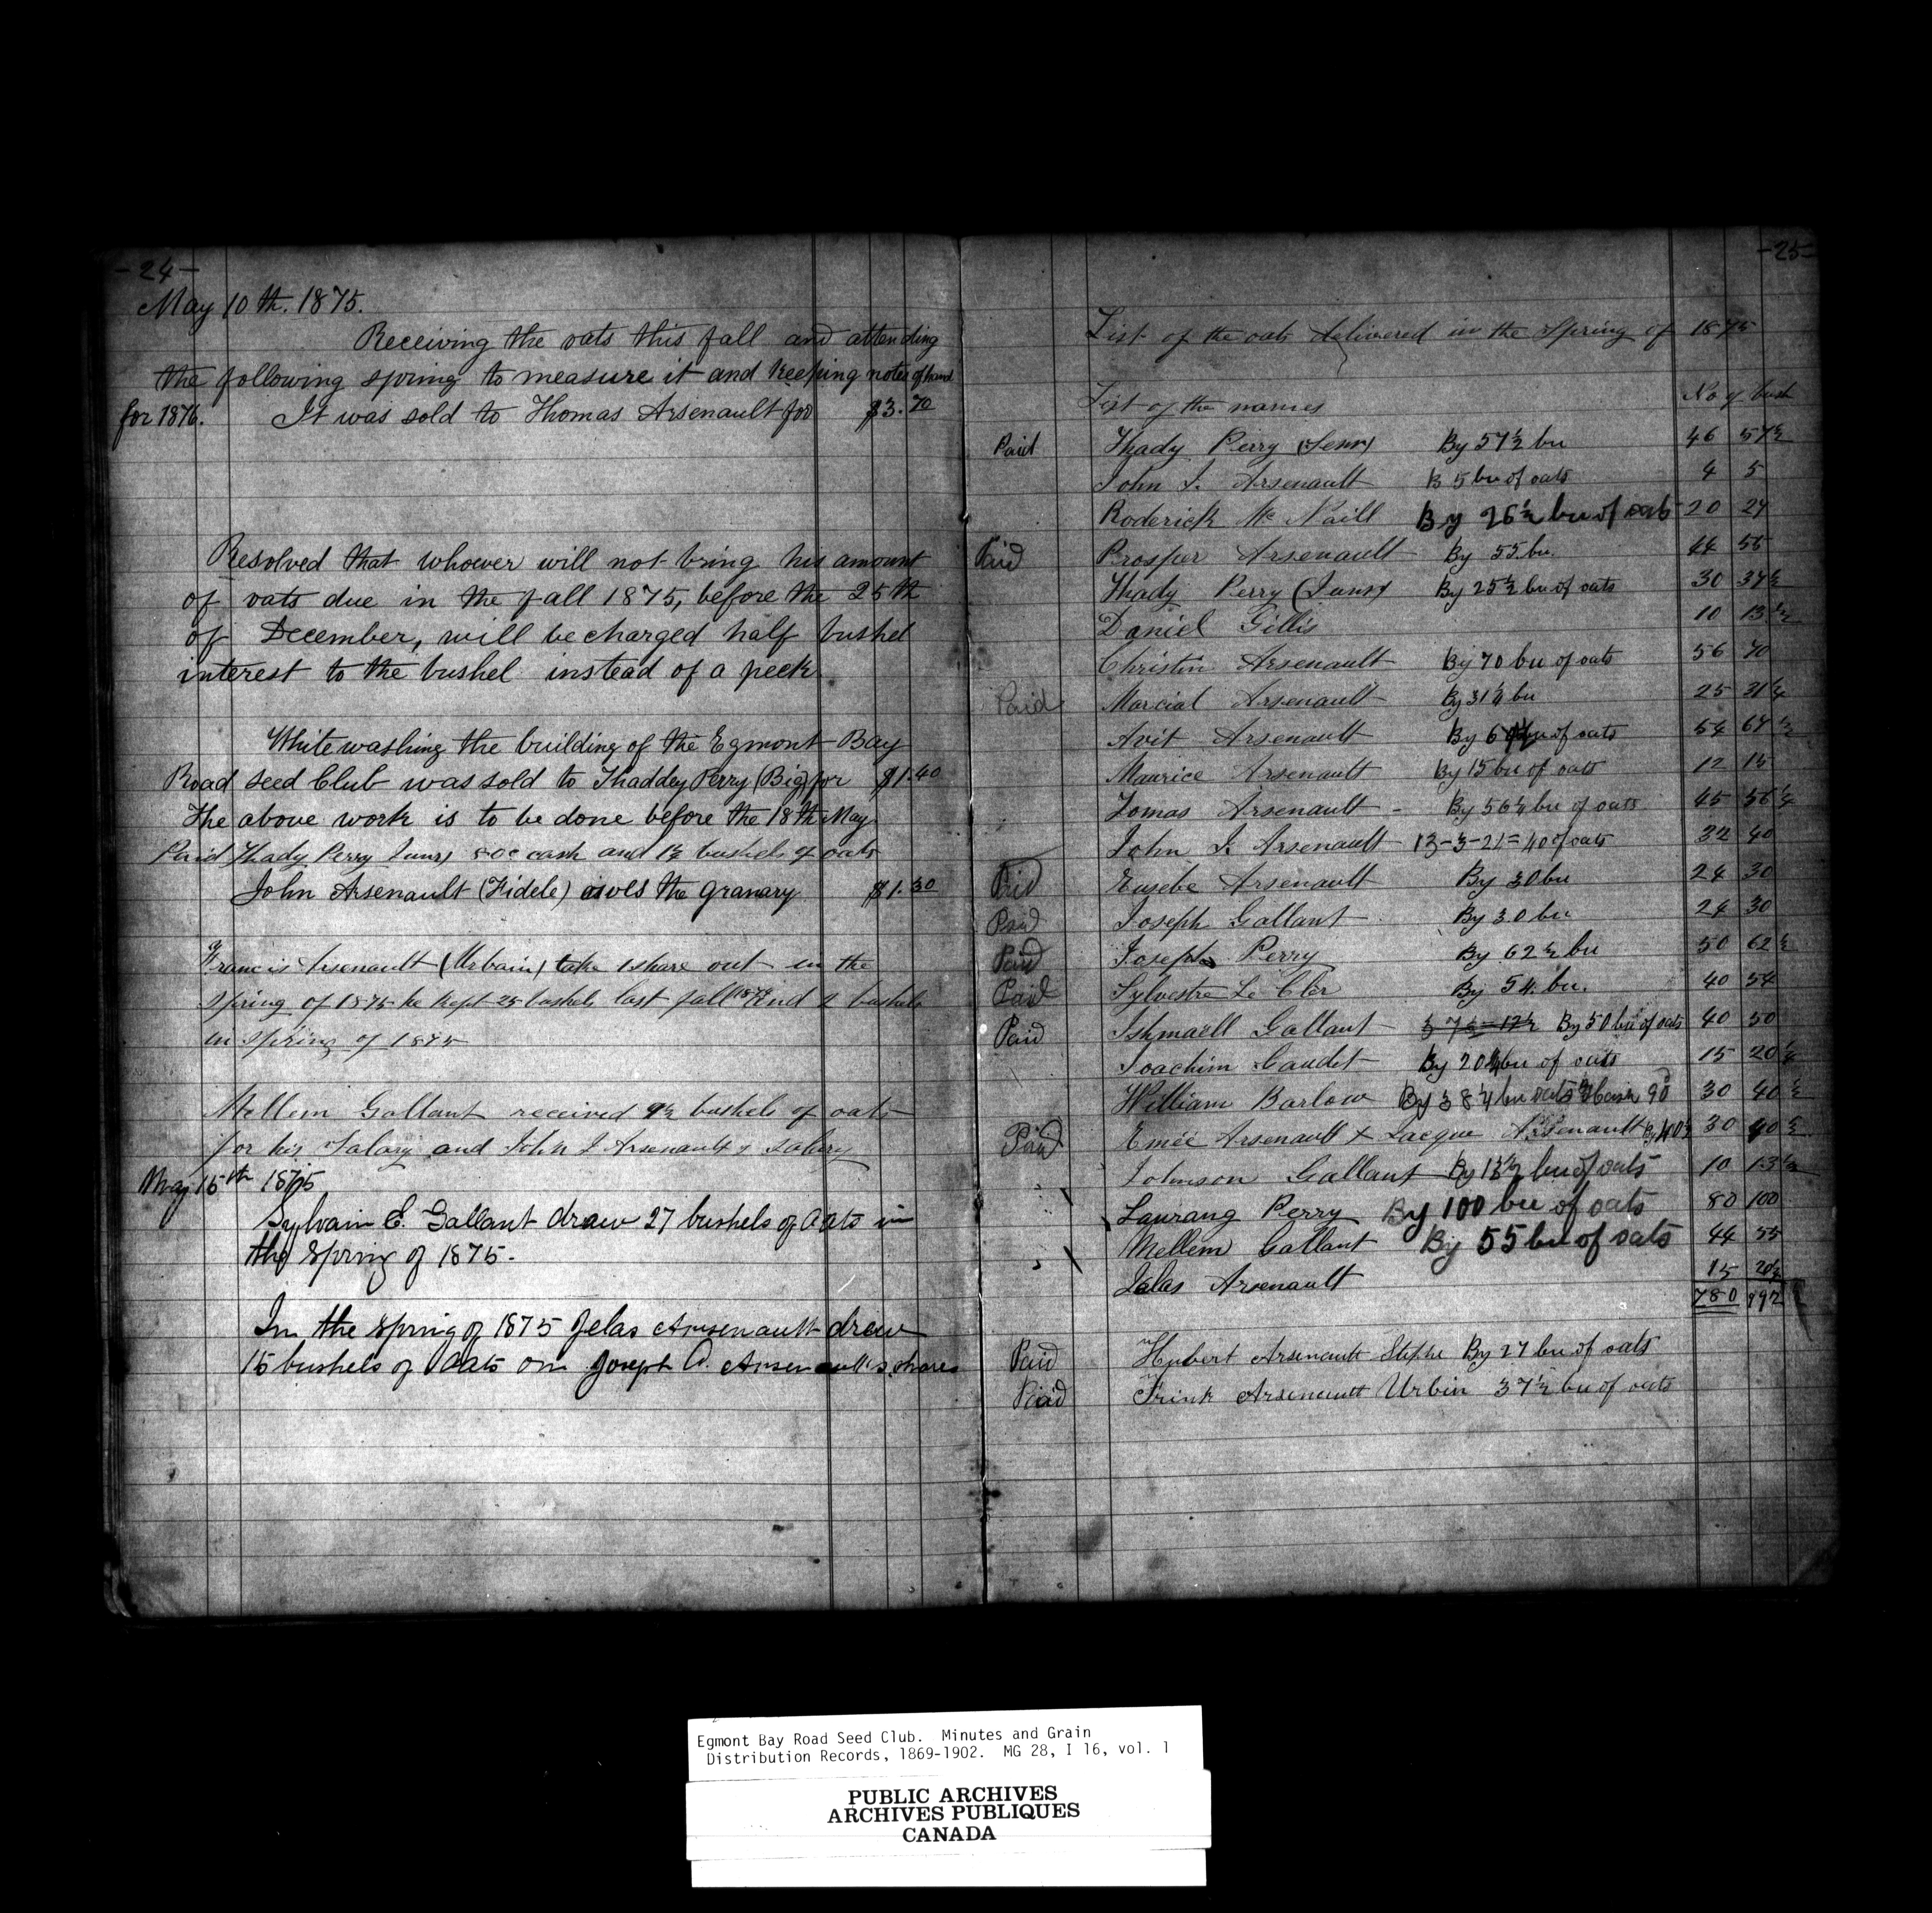 - 24 -
May 10th. 1875.
Receiving the oats this fall and attending
the following spring to measure it and keeping notes of hand
for 1876. It was sold to Thomas Arsenault for $3.70
Resolved that whoever will not bring his amount
of oats due in the fall 1875, before the 25th
of December, will be charged half bushel
interest to the bushel instead of a peck
White washing the building of the Egmont Bay
Road seed Club was sold to Thaddey Perry (Big) for $1.40
The above work is to be done before the 18th May
Paid Thady Perry Junr 80c cash and 1½ bushels of oats
John Arsenault (Fidele) owes the granary $1.30
Francis Arsenault (Urbain) take 1 share out in the
spring of 1875 he kept 25 bushels last fall 1874 and 2 bushels
in spring of 1875
Mellem Gallant received 9½ bushels of oats
for his Salary and John I Arsenault's salary
May 15th 1875
Sylvain E. Gallant draw 27 bushels of Oats in
the spring of 1875.
In the spring of 1875 Jelas Arsenault drew
15 bushels of Oats on Joseph A. Arsenault's shares
- 25 -
List of the oats delivered in the Spring of 1875
List of the names No of bush
Paid Thady Perry (Senr) By 57½ bu 46 57½
John I. Arsenault B 5 bu of oats 4 5
Roderick Mc Naill By 26½ bu of oats 20 27
Paid Prosper Arsenault By 55 bu. 44 55
Thady Perry (Junr) By 25½ bu of oats 30 37½
Daniel Gillis 10 13½
Christin Arsenault By 70 bu of oats 56 70
Paid Marcial Arsenault By 31¼ bu 25 31¼
Avit Arsenault By bu of oats 54 67½
Maurice Arsenault By 15 bu of oats 12 15
Tomas Arsenault - By 56¼ bu of oats 45 56¼
John I. Arsenault 13-3-21=40 of oats 32 40
Paid Eusebe Arsenault By 30 bu 24 30
Paid Joseph Gallant By 30 bu 24 30
Paid Joseph Perry By 62½ bu 50 62½
Paid Sylvestre Le Cler By 54 bu. 40 54
Paid Ishmaell Gallant By 50 bu of oats 40 50
Joachim Gaudet By 20¼ bu of oats 15 20¼
William Barlow By 38¼ bu oats cash 90 30 40½
Paid Emée Arsenault & Jacque Arsenault By 40½ 30 40½
Johnson Gallant By 13½ bu of oats 10 13½
Laurang Perry By 100 bu of oats 80 100
Mellem Gallant By 55 bu of oats 44 55
Jelas Arsenault 15 20¼
780 992
Paid Hubert Arsenault Stephe By 27 bu of oats
Paid Frink Arsenault Urbin 37½ bu of oats
Egmont Bay Road Seed Club. Minutes and Grain
Distribution Records, 1869-1902. MG 28, I 16, vol. 1
PUBLIC ARCHIVES
ARCHIVES PUBLIQUES
CANADA